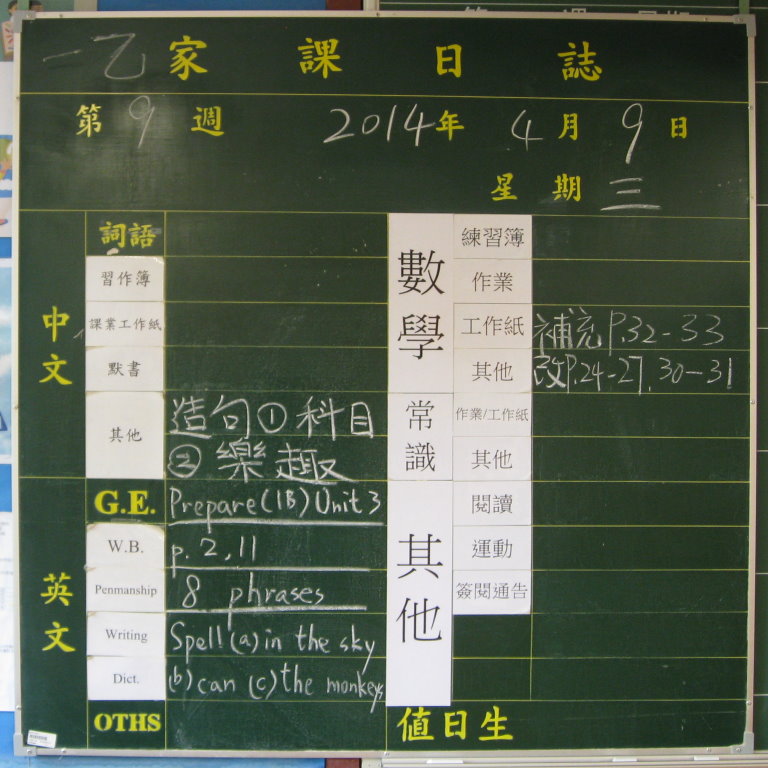 一乙家課日誌
第9週 2014年4月9日
星期三
中文
詞語
習作簿
課業工作紙
默書
其他 造句①科目
②樂趣
英文
G.E. Prepare(1B)Unit 3
W.B. p. 2, 11
Penmanship 8 phrases
Writing Spell(a)in the sky
Dict. (b)can (c)the monkeys
OTHS
數學
練習簿
作業
工作紙 補充P.32-33
其他 改P.24-27, 30-31
常識
作業/工作紙
其他
其他
閱讀
運動
簽閱通告
值日生